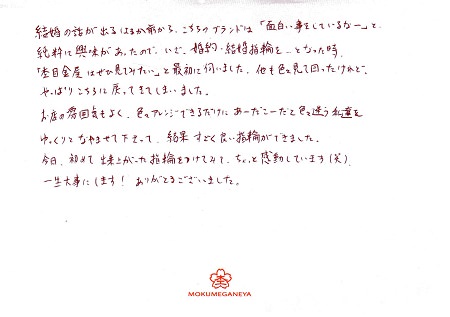 結婚の話が出るはるか前から、こちらのブランドは「面白い事をしているなー」と、
純粋に興味があったので、いざ、婚約・結婚指輪を…となった時、
「杢目金屋はぜひ見てみたい」と最初に伺いました。他も色々見て回ったけれど、
やっぱりこちらに戻ってきてしまいました。
お店の雰囲気もよく、色々アレンジできるだけにあーだこーだと色々迷う私達を
ゆっくりとなやませて下さって、結果すごく良い指輪ができました。
今日、初めて出来上がった指輪をつけてみて、ちょっと感動しています(笑)
一生大事にします! ありがとうございました。
MOKUMEGANEYA